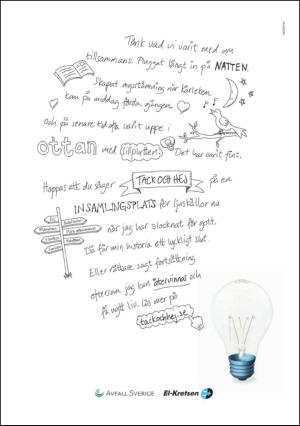 Tänk vad vi varit med om
tillsammans. Pluggat långt in på NATTEN.
Skapat mysstämning när kärleken
kom på middag första gången.
Och på senare tid ofta varit uppe i
ottan med tillplattan. Det har varit fint.
Hoppas att du säger TACK OCH HEJ på en
INSAMLINGSPLATS för ljuskällor nu
när jag har slocknat för gott.
Då får min historia ett lyckligt slut.
Eller rättare sagt fortsättning
eftersom jag kan återvinnas och
få nytt liv. Läs mer på
tackochhej.se
AVFALL SVERIGE El-Kretsen